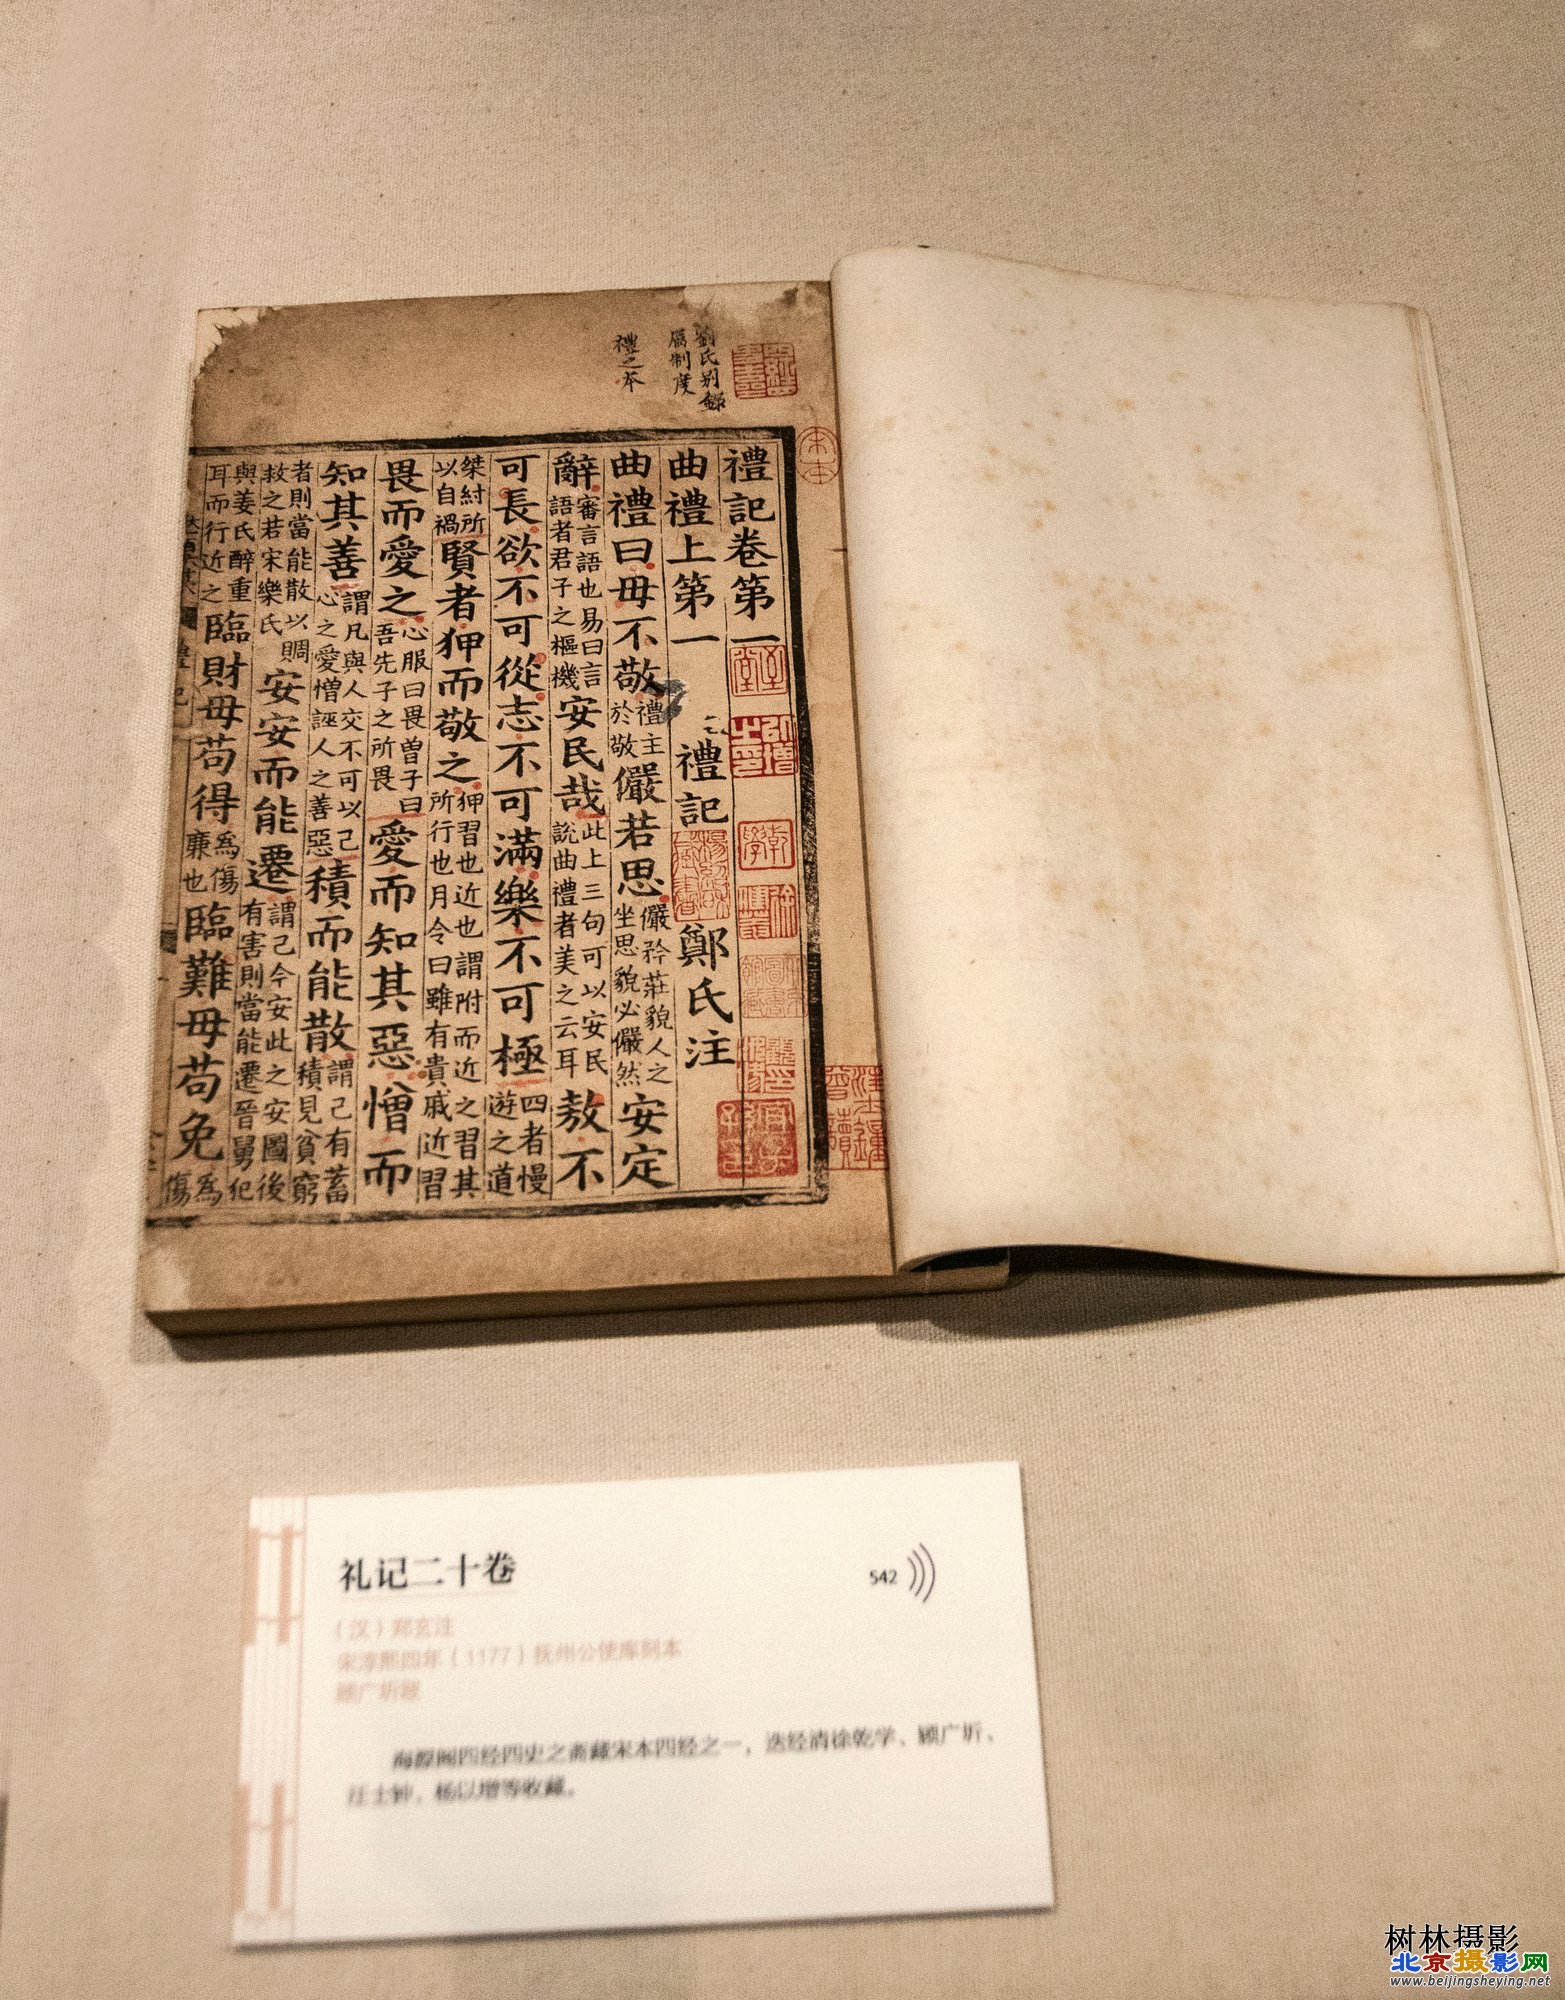 劉氏別錄
屬制度
禮之本
宋本
禮記卷第一
乾學
曲禮上第一 禮記 鄭氏注
曲禮曰毋不敬禮主於敬儼若思儼矜莊貌人之坐思貌必儼然安定
辭審言語也易曰言語者君子之樞機安民哉此上三句可以安民說曲禮者美之云耳敖不
可長欲不可從志不可滿樂不可極四者慢遊之道
桀紂所以自禍賢者狎而敬之狎習也近也謂附而近之習其所行也月令曰雖有貴戚近習
畏而愛之心服曰畏曾子曰吾先子之所畏愛而知其惡憎而
知其善謂凡與人交不可以己心之愛憎誣人之善惡積而能散謂己有蓄積見貧窮
者則當能散以賙救之若宋樂氏安安而能遷謂己今安此之安圖後有害則當能遷晉舅犯
與姜氏醉重耳而行近之臨財毋苟得爲傷廉也臨難毋苟免爲傷
礼记二十卷
542
（汉）郑玄注
宋淳熙四年（1177）抚州公使库刻本
顾广圻跋
海源阁四经四史之斋藏宋本四经之一，迭经清徐乾学、顾广圻、
汪士钟、杨以增等收藏。
树林摄影
北京摄影网
www.beijingsheying.net